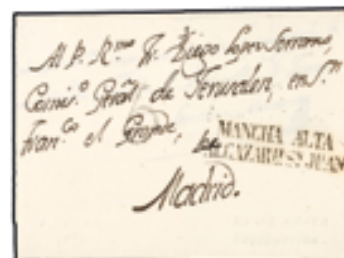 Al P. R.mo Fr. Diego Lopez Serrano,
Comis.o Gral. de Jerusalen, en S.n
Fran.co el Grande,
MANCHA ALTA
ALCAZAR DE S. JUAN
Madrid.